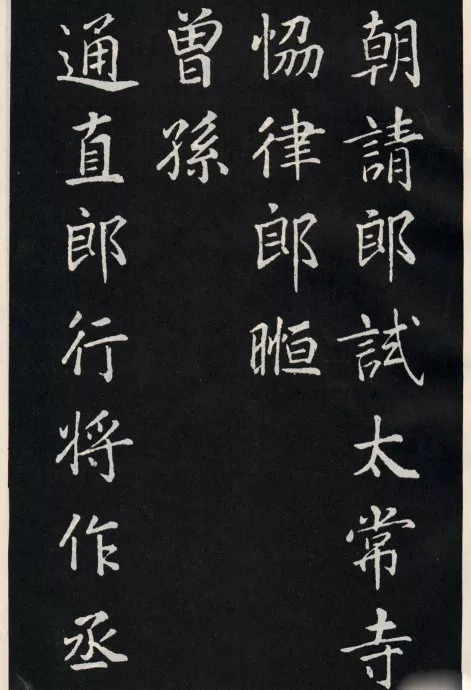 朝請郎試太常寺
恊律郎暅
曾孫
通直郎行将作丞